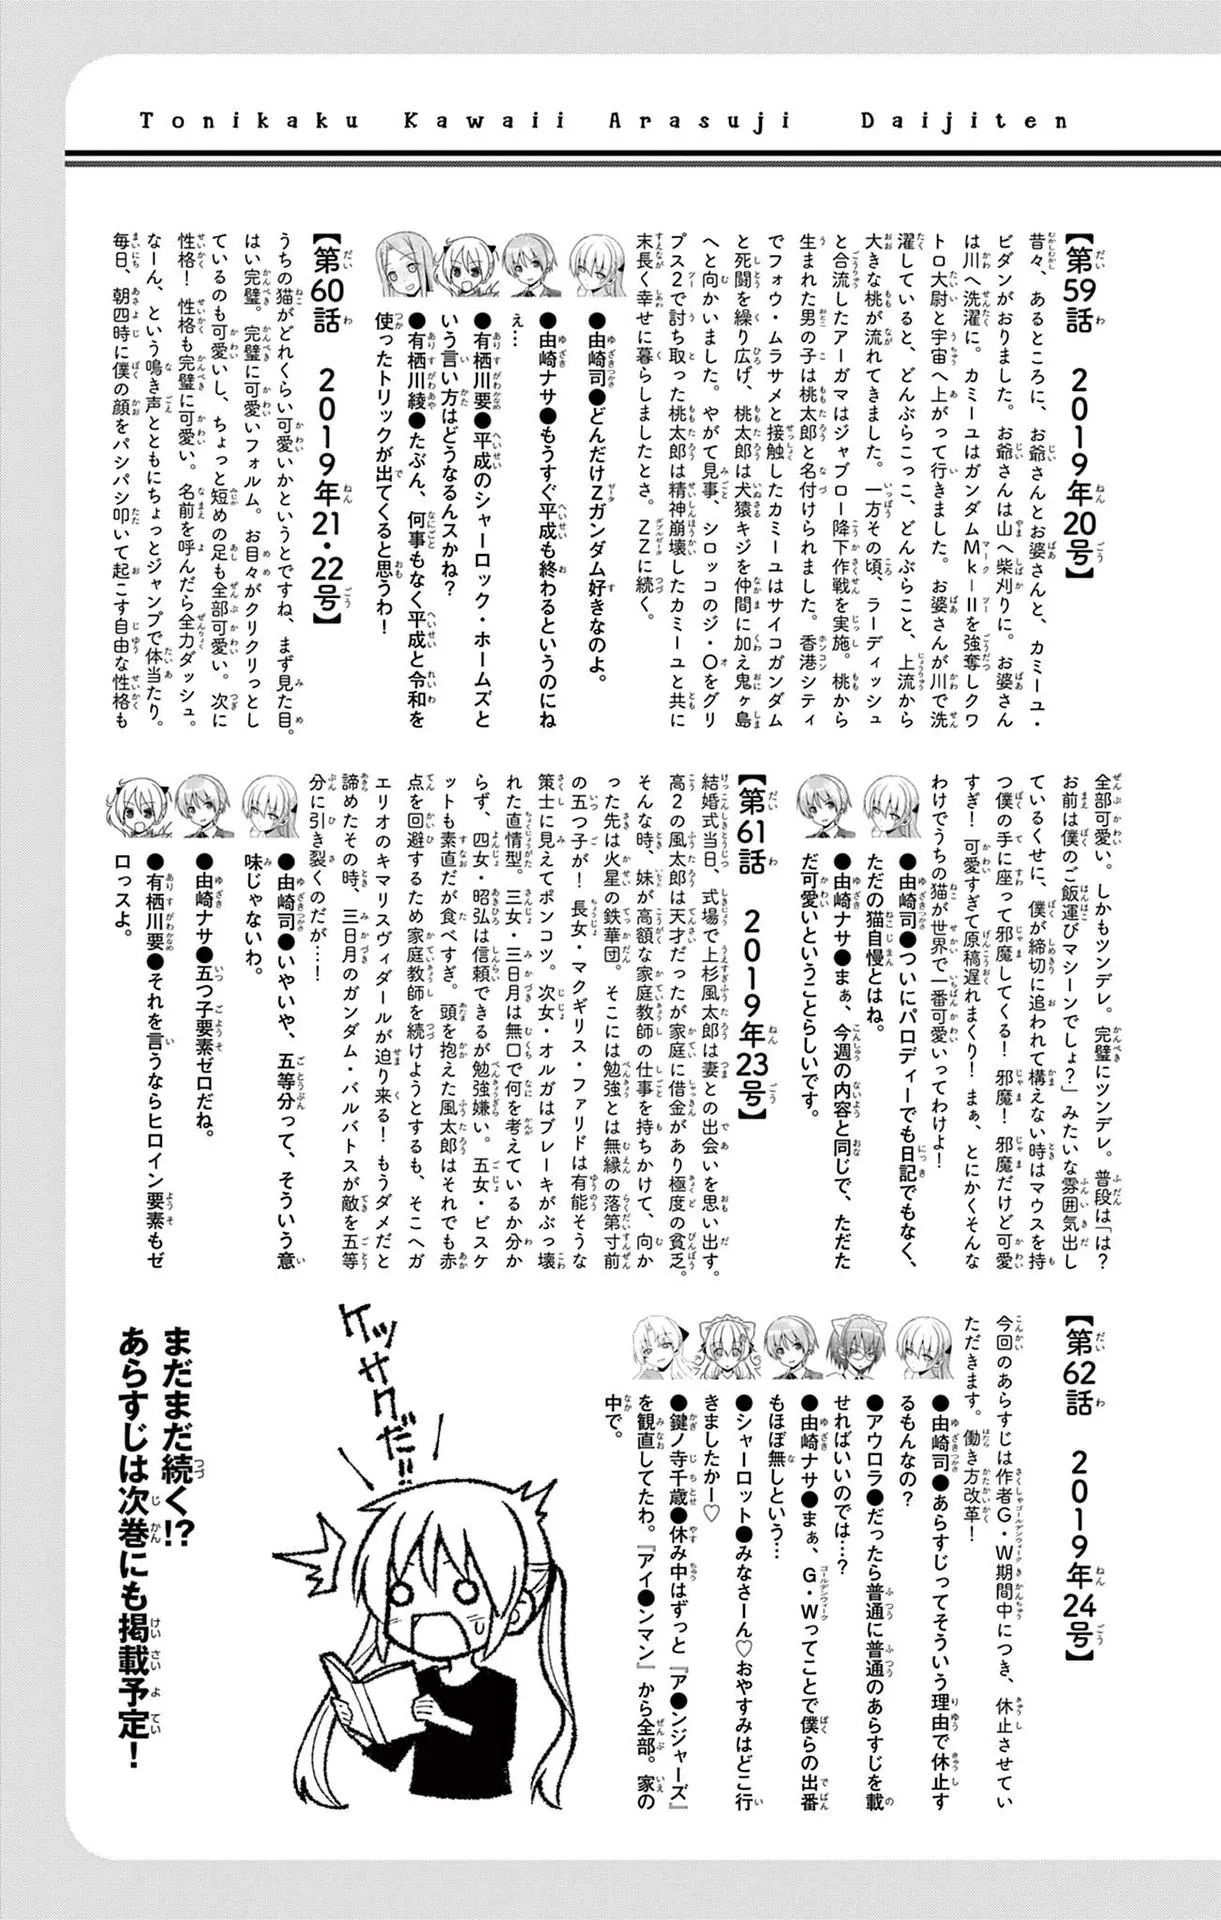 Tonikaku Kawaii Arasuji Daijiten
【第59話　2019年20号】
昔々、あるところに、お爺さんとお婆さんと、カミーユ・
ビダンがおりました。お爺さんは山へ柴刈りに。お婆さん
は川へ洗濯に。カミーユはガンダムMk-Ⅱを強奪しクワ
トロ大尉と宇宙へ上がって行きました。お婆さんが川で洗
濯していると、どんぶらこっこ、どんぶらこと、上流から
大きな桃が流れてきました。一方その頃、ラーディッシュ
と合流したアーガマはジャブロー降下作戦を実施。桃から
生まれた男の子は桃太郎と名付けられました。香港シティ
でフォウ・ムラサメと接触したカミーユはサイコガンダム
と死闘を繰り広げ、桃太郎は犬猿キジを仲間に加え鬼ヶ島
へと向かいました。やがて見事、シロッコのジ・Oをグリ
プス2で討ち取った桃太郎は精神崩壊したカミーユと共に
末長く幸せに暮らしましたとさ。ZZに続く。
●由崎司●どんだけZガンダム好きなのよ。
●由崎ナサ●もうすぐ平成も終わるというのにね
ぇ…
●有栖川要●平成のシャーロック・ホームズと
いう言い方はどうなるんスかね?
●有栖川綾●たぶん、何事もなく平成と令和を
使ったトリックが出てくると思うわ!
【第60話　2019年21・22号】
うちの猫がどれくらい可愛いかというとですね、まず見た目。
はい完璧。完璧に可愛いフォルム。お目々がクリクリっとし
ているのも可愛いし、ちょっと短めの足も全部可愛い。次に
性格!性格も完璧に可愛い。名前を呼んだら全力ダッシュ。
なーん、という鳴き声とともにちょっとジャンプで体当たり。
毎日、朝四時に僕の顔をパシパシ叩いて起こす自由な性格も
全部可愛い。しかもツンデレ。完璧にツンデレ。普段は「は?
お前は僕のご飯運びマシーンでしょ?」みたいな雰囲気出し
ているくせに、僕が締切に追われて構えない時はマウスを持
つ僕の手に座って邪魔してくる!邪魔!邪魔だけど可愛
すぎ!可愛すぎて原稿遅れまくり!まぁ、とにかくそんな
わけでうちの猫が世界で一番可愛いってわけよ!
●由崎司●ついにパロディーでも日記でもなく、
ただの猫自慢とはね。
●由崎ナサ●まぁ、今週の内容と同じで、ただた
だ可愛いということらしいです。
【第61話　2019年23号】
結婚式当日、式場で上杉風太郎は妻との出会いを思い出す。
高2の風太郎は天才だったが家庭に借金があり極度の貧乏。
そんな時、妹が高額な家庭教師の仕事を持ちかけて、向か
った先は火星の鉄華団。そこには勉強とは無縁の落第寸前
の五つ子が!長女・マクギリス・ファリドは有能そうな
策士に見えてポンコツ。次女・オルガはブレーキがぶっ壊
れた直情型。三女・三日月は無口で何を考えているか分か
らず、四女・昭弘は信頼できるが勉強嫌い。五女・ビスケ
ットも素直だが食べすぎ。頭を抱えた風太郎はそれでも赤
点を回避するため家庭教師を続けようとするも、そこへガ
エリオのキマリスヴィダールが迫り来る!もうダメだと
諦めたその時、三日月のガンダム・バルバトスが敵を五等
分に引き裂くのだが…!
●由崎司●いやいや、五等分って、そういう意
味じゃないわ。
●由崎ナサ●五つ子要素ゼロだね。
●有栖川要●それを言うならヒロイン要素もゼ
ロッスよ。
【第62話　2019年24号】
今回のあらすじは作者G・W期間中につき、休止させてい
ただきます。働き方改革!
●由崎司●あらすじってそういう理由で休止す
るもんなの?
●アウロラ●だったら普通に普通のあらすじを載
せればいいのでは…?
●由崎ナサ●まぁ、G・Wってことで僕らの出番
もほぼ無しという…
●シャーロット●みなさーん♡おやすみはどこ行
きましたかー♡
●鍵ノ寺千歳●休み中はずっと『ア●ンジャーズ』
を観直してたわ。『アイ●ンマン』から全部。家の
中で。
ケッサクだ!!
まだまだ続く!?
あらすじは次巻にも掲載予定!